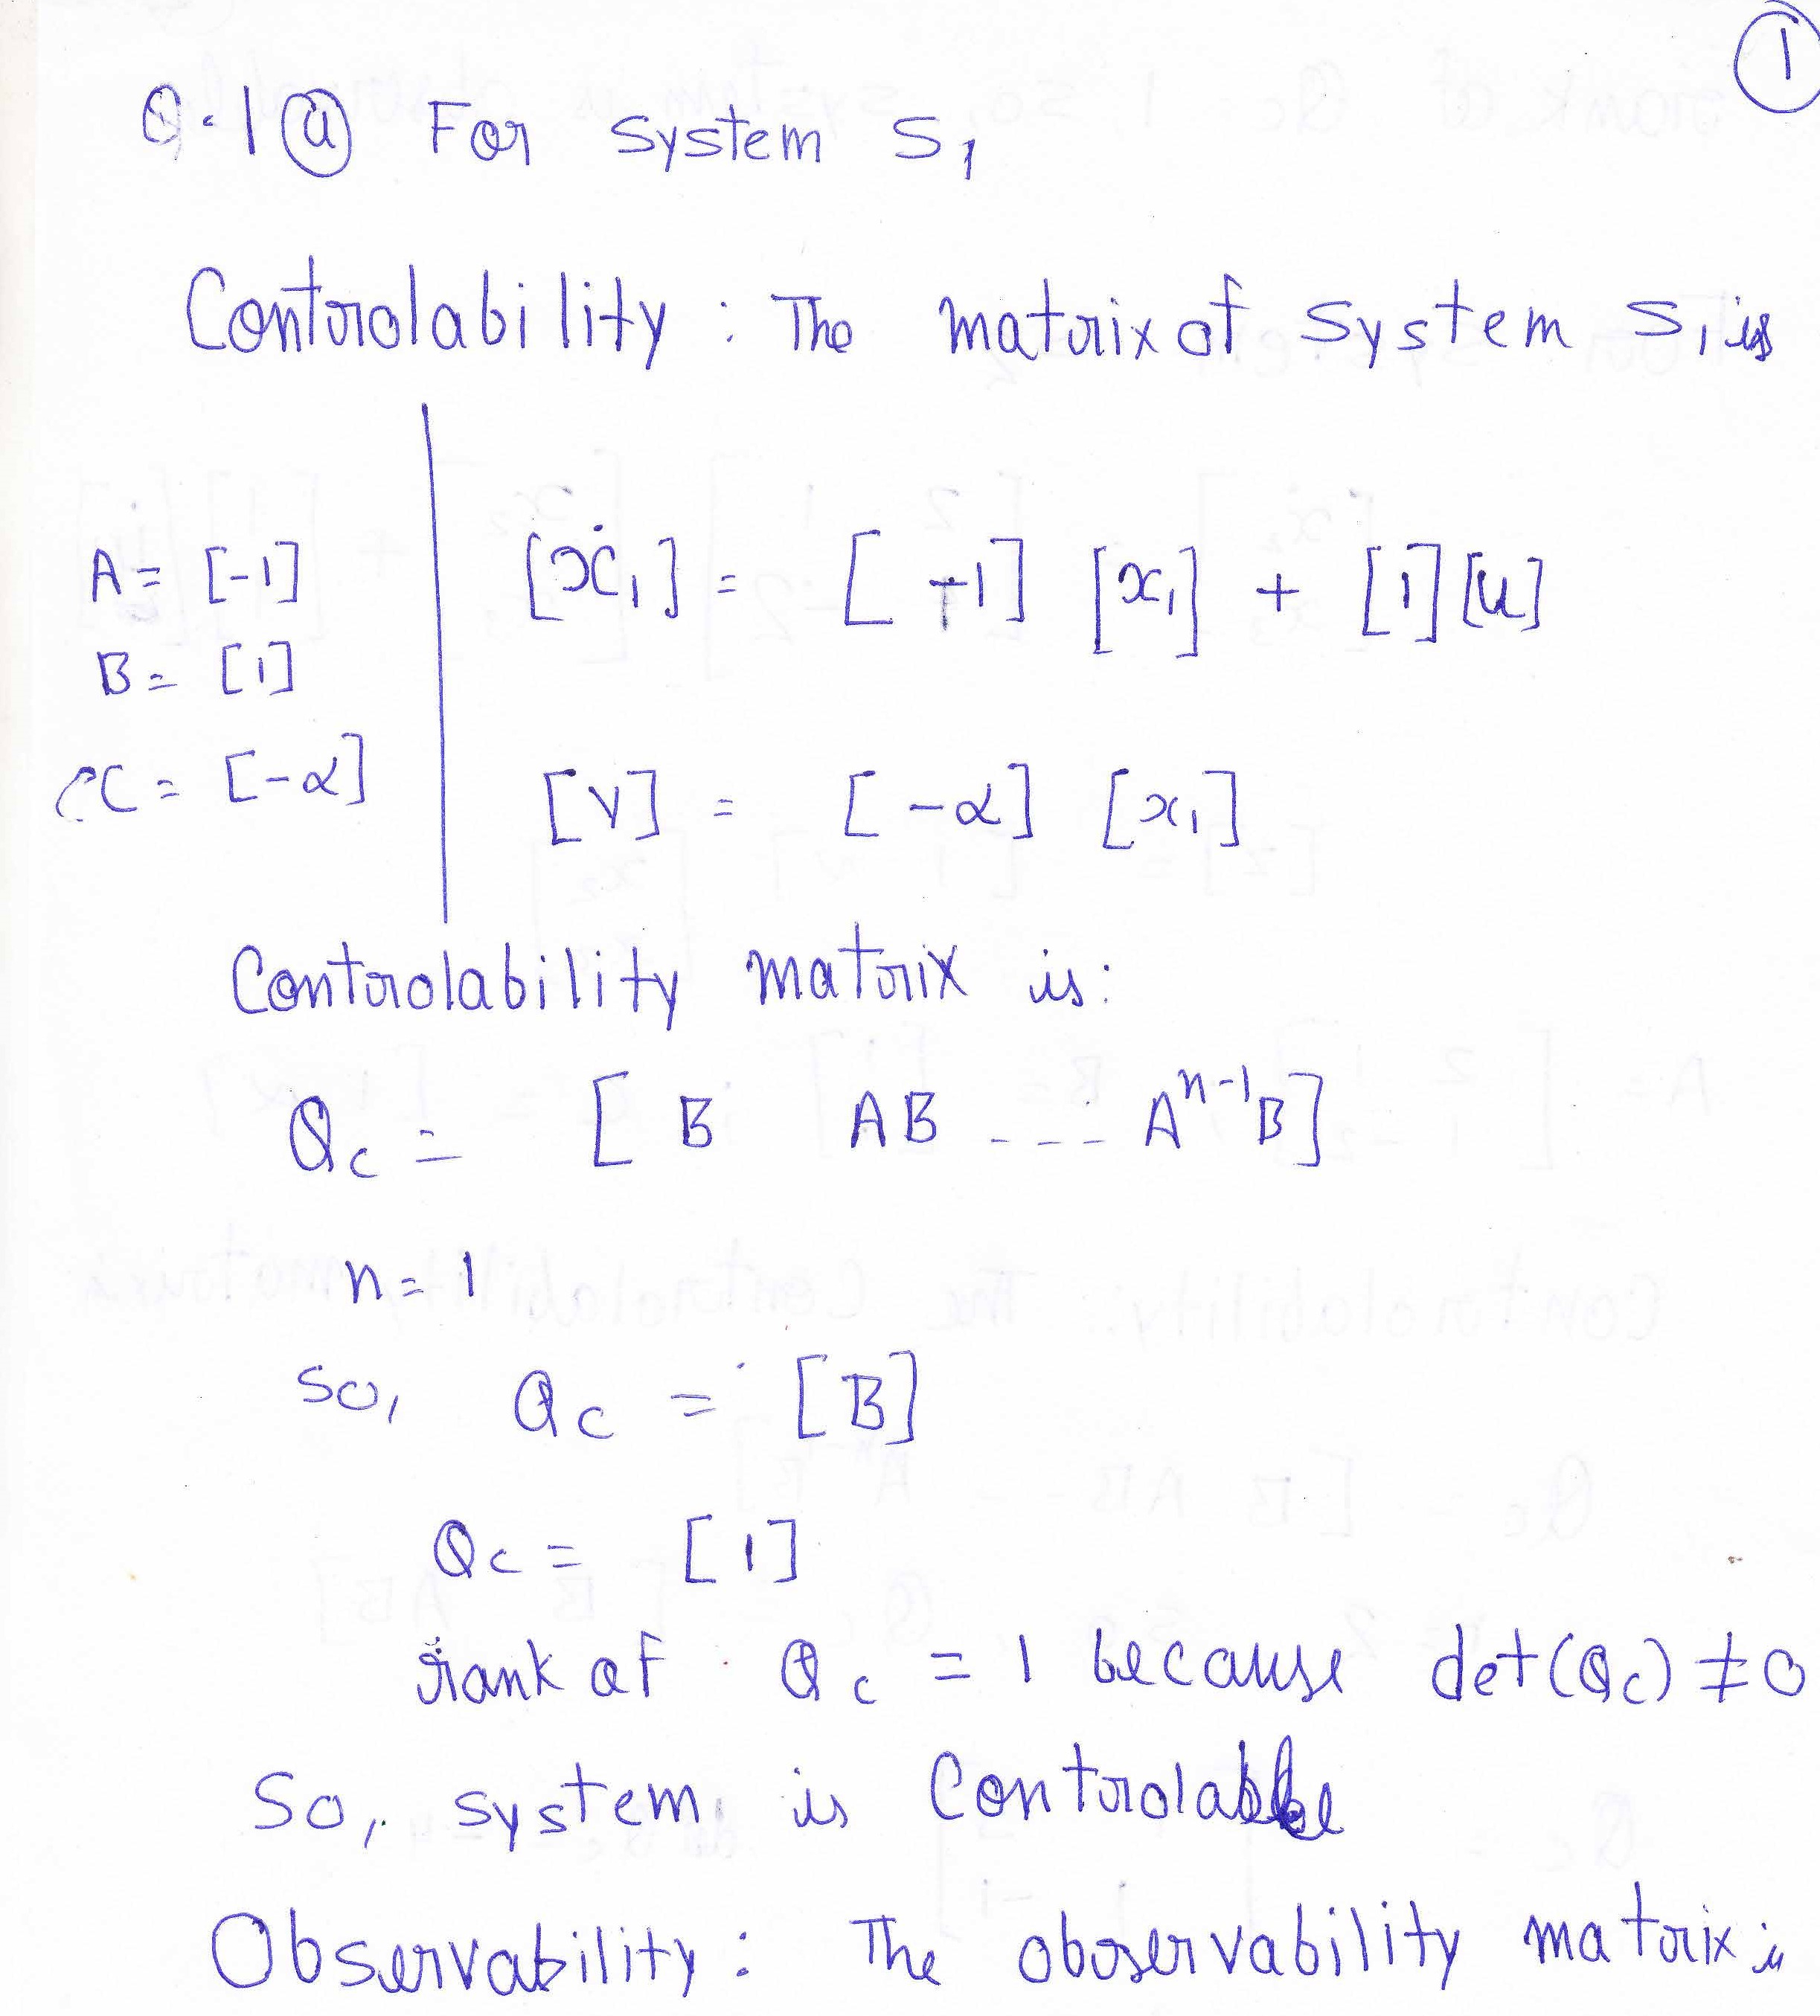 1
Q.1 (a) For system S₁
Controlability : The matrix of system S₁ is
A = [-1]
B = [1]
C = [-α]
[ẋ₁] = [-1] [x₁] + [1][u]
[v] = [-α] [x₁]
Controlability matrix is:
Qc = [ B AB ---- Aⁿ⁻¹B]
n = 1
so, Qc = [B]
Qc = [1]
rank of Qc = 1 because det(Qc) ≠ 0
So, system is Controlable
Observability : The observability matrix is